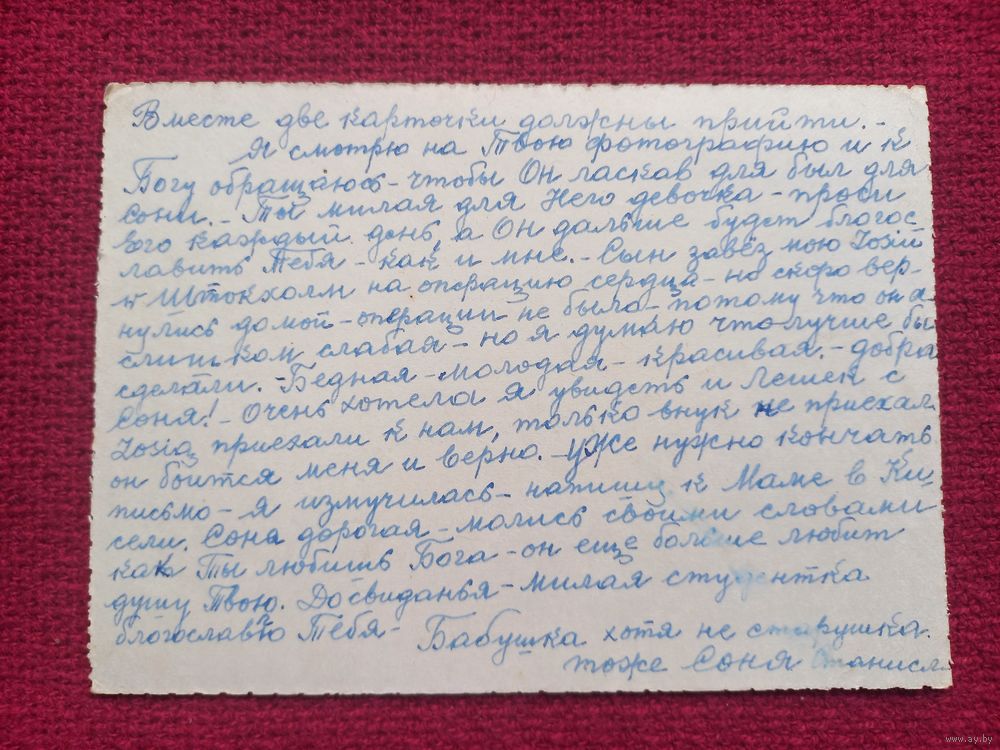 Вместе две карточки должны прийти.-
Я смотрю на Твою фотографию и к
Богу обращаюсь - чтобы Он ласкав для был для
Сони. - Ты милая для Него девочка - проси
Его каждый день, а Он дальше будет благос-
лавить Тебя - как и мне. - Сын завёз мою Zosię
w Штокхолм на операцию сердца - но скоро вер-
нулись домой - операции не было - потому что она
слишком слабая - но я думаю что лучше бы
сделали. - Бедная - молодая - красивая. - добра
Соня! - Очень хотела я увидеть и Лешек с
Zosią приехали к нам, только внук не приехал
он боится меня и верно. - Уже нужно кончать
письмо - я измучилась - напишу к Маме в Ки-
сели. Соня дорогая - молись своими словами
как Ты любишь Бога - он еще больше любит
душу Твою. Досвиданья - милая студентка
благославю Тебя -
Бабушка хотя не старушка.
тоже Соня Станисл
www.ay.by